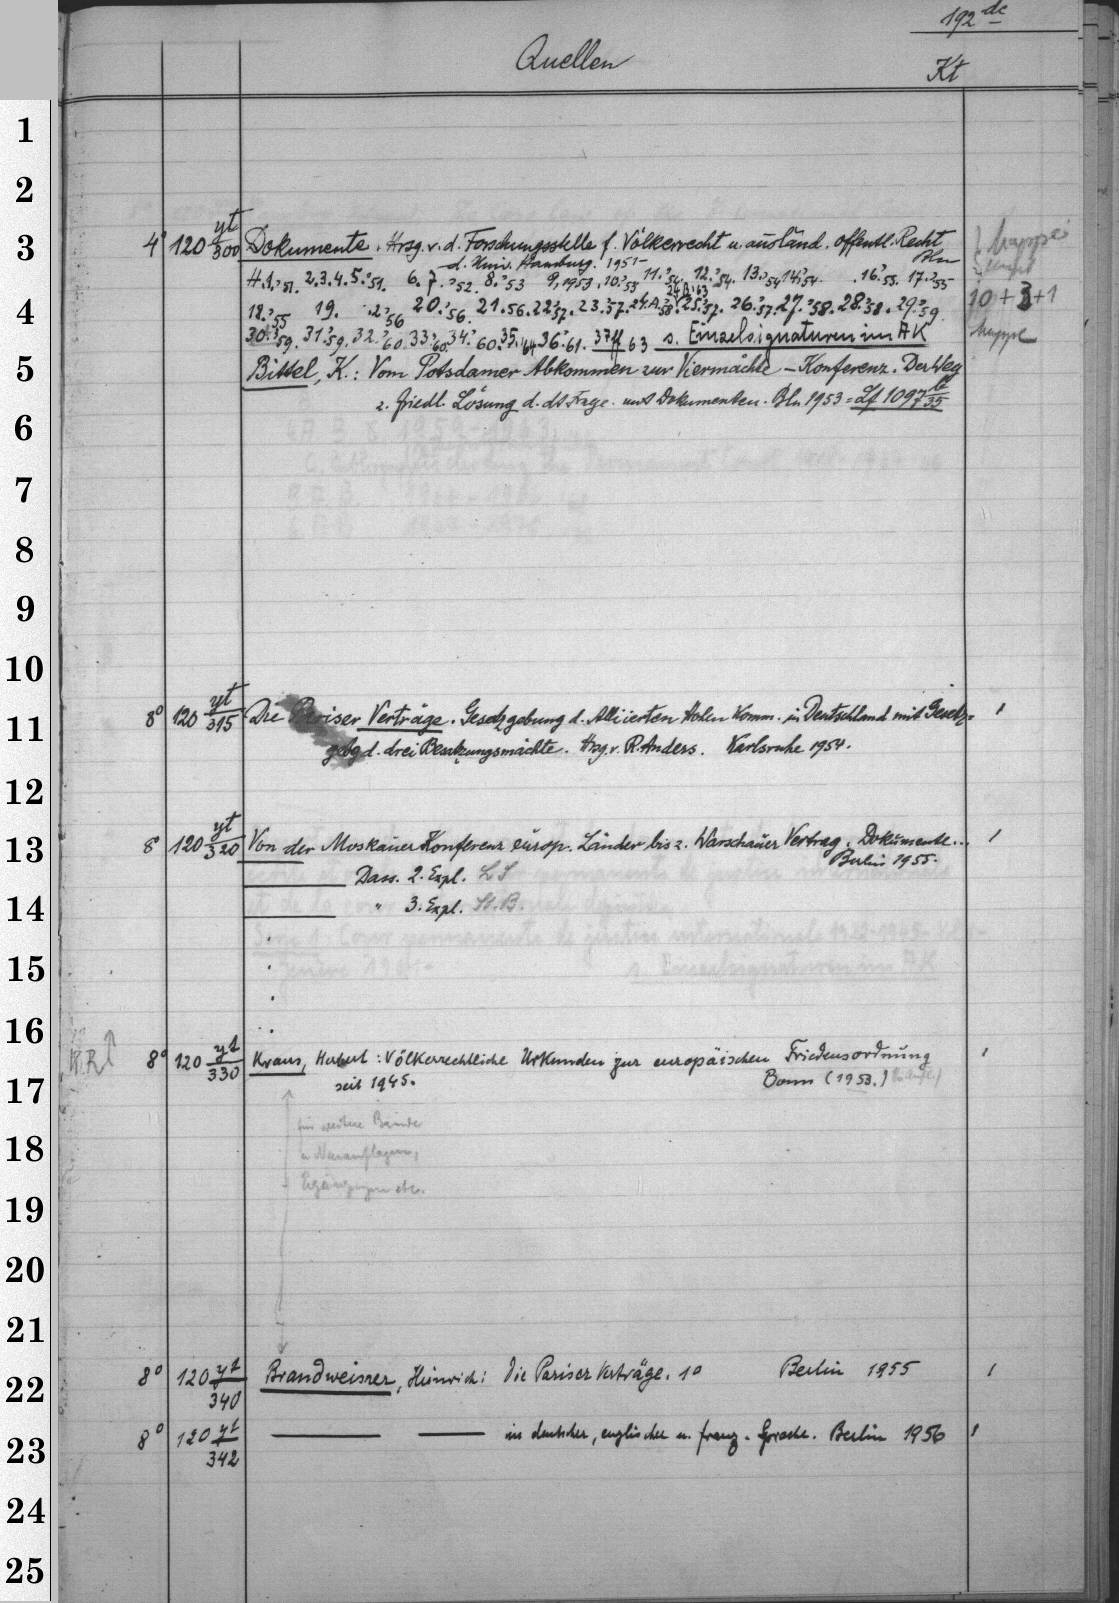 192 de
Quellen
Kt
1
2
3
4° 120 yt/300 Dokumente. Hrsg. v. d. Forschungsstelle f. Völkerrecht u. ausländ. öffentl. Recht
d. Univ. Hamburg. 1951- Bln
H.1,'51. 2.3.4.5.'51. 6. 7.'52. 8.'53 9,1953. 10.'53 11.'54. 12.'54. 13.'54 14.'54. 16.'55. 17.'55
24A'63
10+3+1
4
18.'55 19. '56 20.'56. 21.56. 22.'57. 23.57. 24.A.'58. 25.'57. 26.'57. 27.'58. 28.'58. 29.'59.
Mappe
30.'59. 31.'59. 32.'60. 33.'60. 34.'60. 35.'61 36.'61. 37ff 63 s. Einzelsignaturen im AK
5
Bittel, K.: Vom Potsdamer Abkommen zur Viermächte-Konferenz. Der Weg
z. friedl. Lösung d. dt Frage. mit Dokumenten. Bln 1953 =
6
7
8
9
10
11
8° 120 yt/315 Die Pariser Verträge. Gesetzgebung d. Alliierten Hohen Komm. in Deutschland mit Gesetz- 1
gebg d. drei Besatzungsmächte. Hrsg. v. R. Anders. Karlsruhe 1954.
12
13
8° 120 yt/320 Von der Moskauer Konferenz europ. Länder bis z. Warschauer Vertrag. Dokumente... 1
Berlin 1955.
Dass. 2. Expl. LS
14
" 3. Expl. St.B.
15
16
R.R.
8° 120 yt/330 Kraus, Herbert: Völkerrechtliche Urkunden zur europäischen Friedensordnung 1
seit 1945. Bonn (1953.)
17
für weitere Bände
18
u. Neuauflagen,
Ergänzungen etc.
19
20
21
22
8° 120 yt/340 Brandweiner, Heinrich: Die Pariser Verträge. 1° Berlin 1955 1
23
8° 120 yt/342 in deutscher, englischer u. franz. Sprache. Berlin 1956 1
24
25